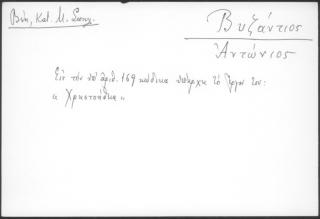 Βέη, Κατ. Μ.
Βυζάντιος
Ἀντώνιος
Εἰς τὸν ὑπ' ἀριθ. 169 κώδικα ὑπάρχει τὸ ἔργον του:
« Χρηστοήθεια »